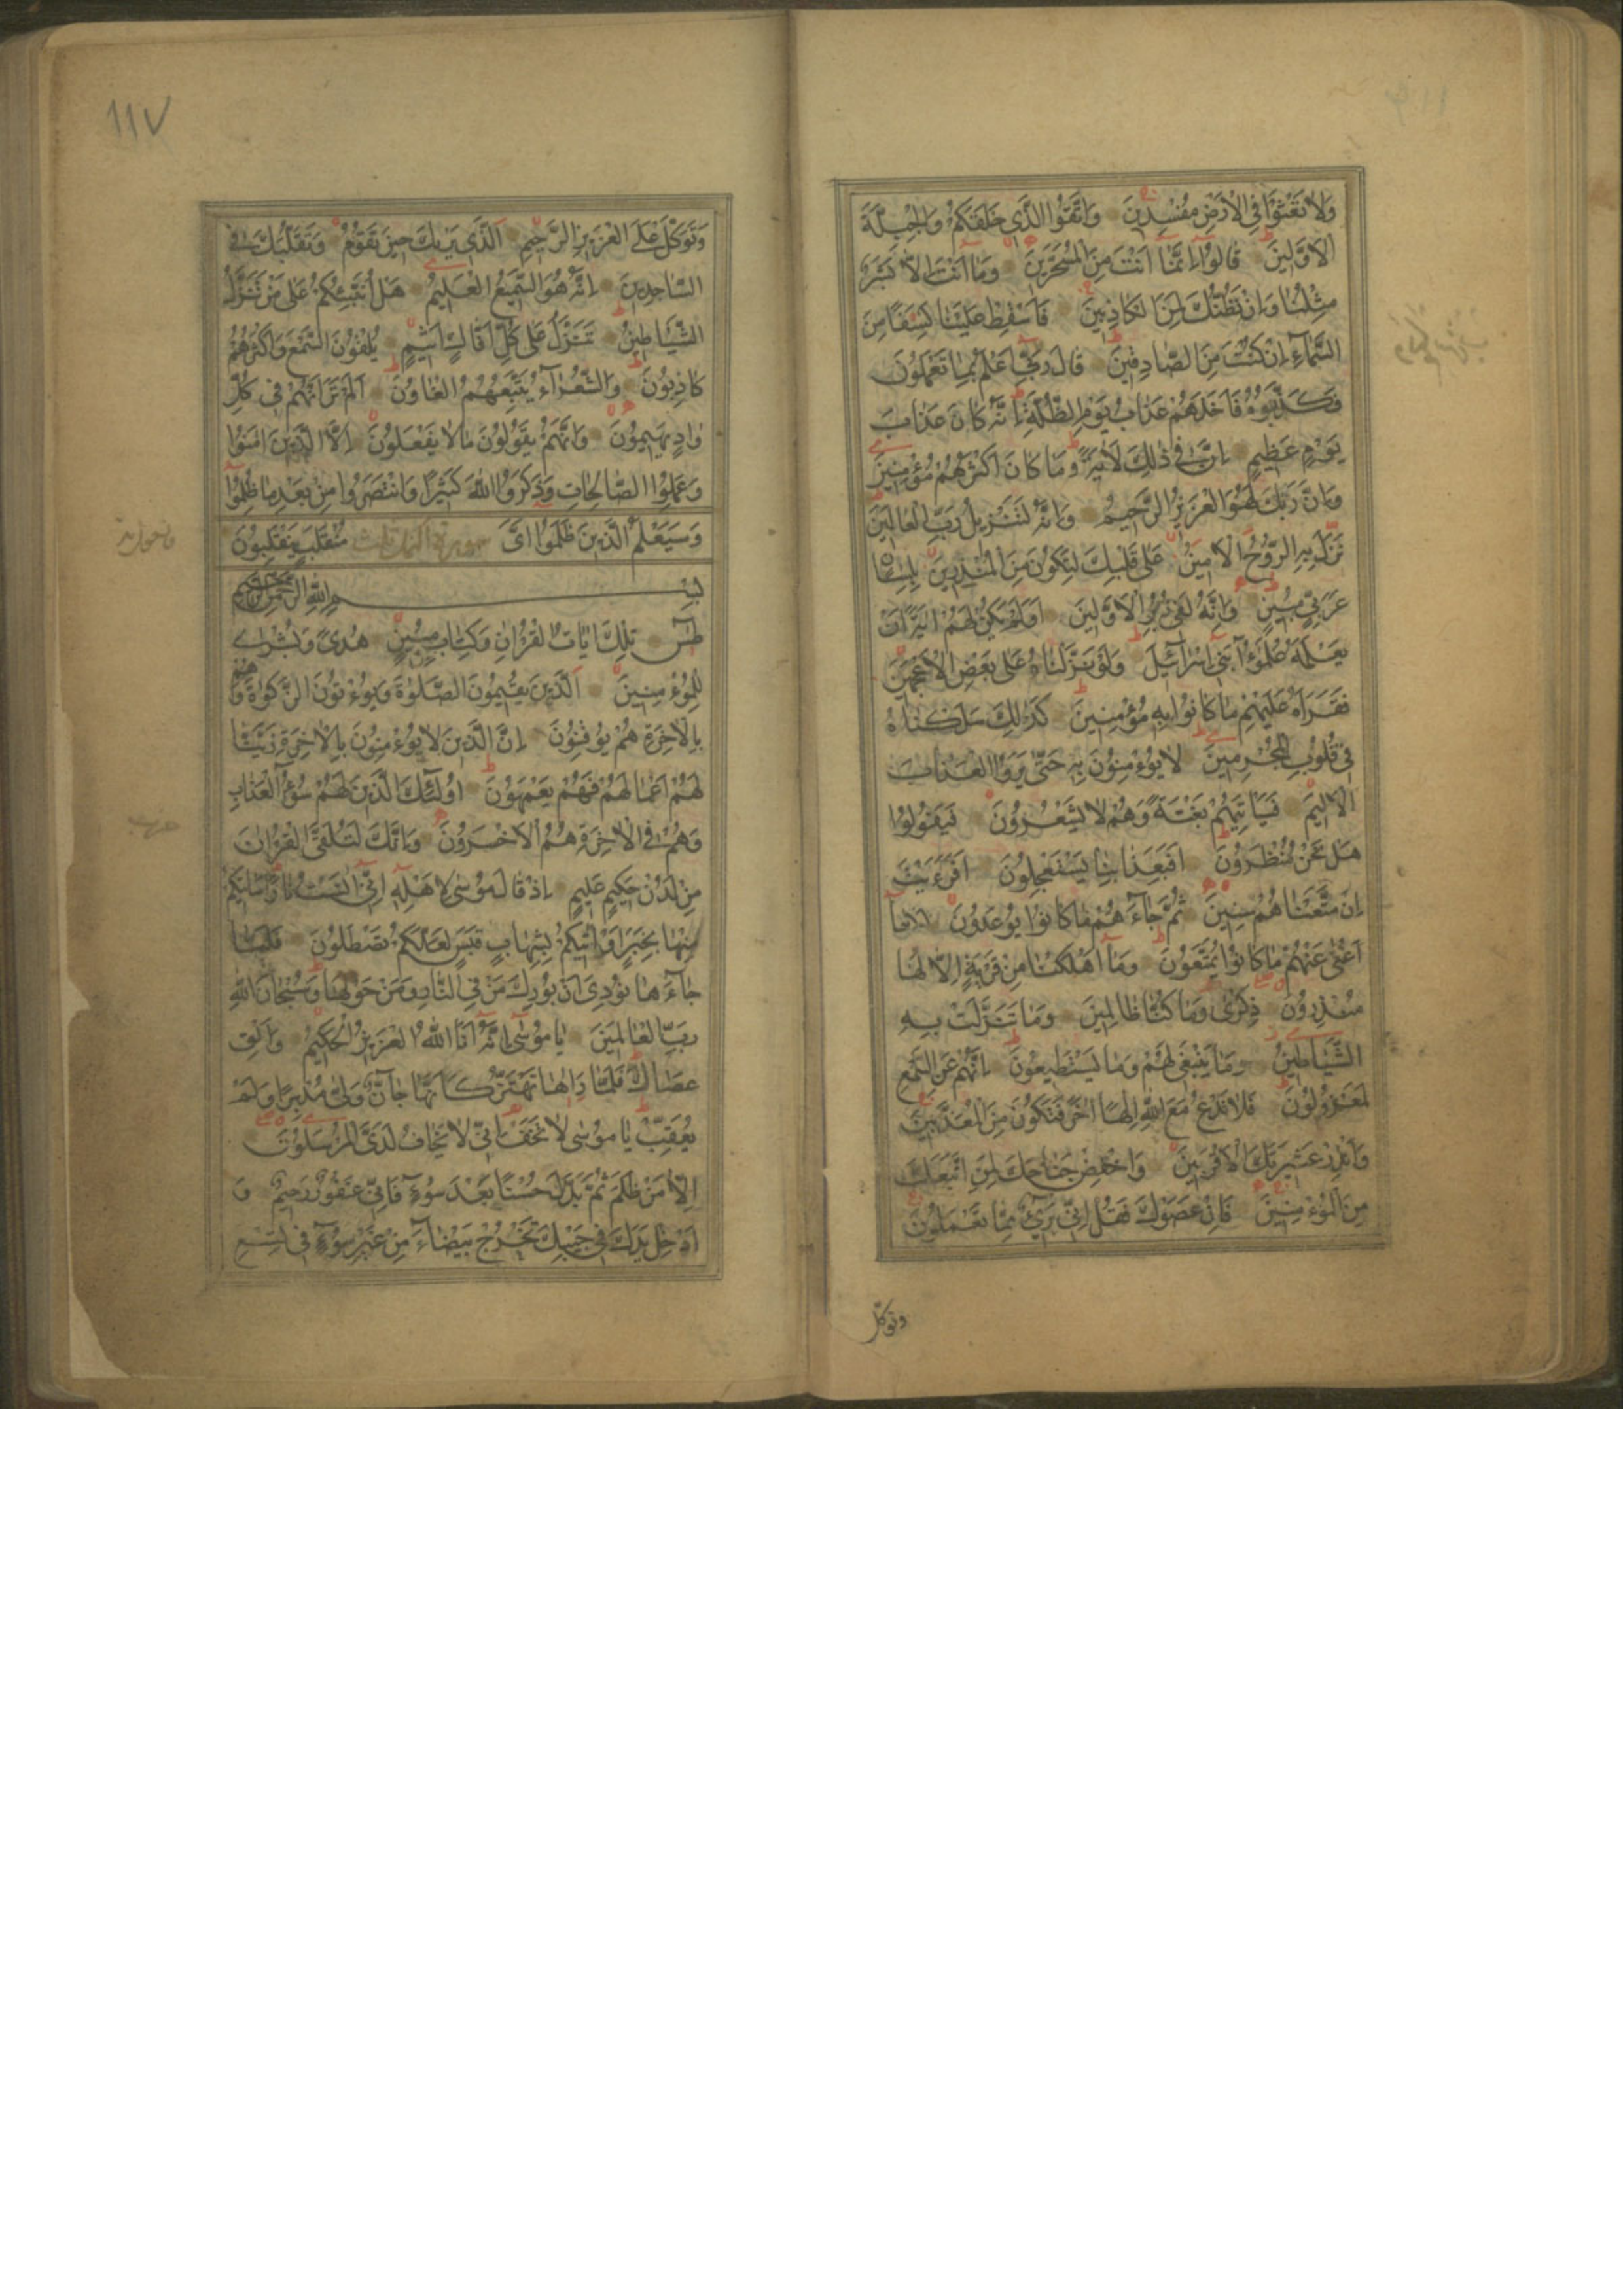 وَلَا تَعْثَوْا فِي الْاَرْضِ مُفْسِدِينَ وَاتَّقُوا الَّذِي خَلَقَكُمْ وَالْجِبِلَّةَ
الْاَوَّلِينَ قَالُوا اِنَّمَا اَنْتَ مِنَ الْمُسَحَّرِينَ وَمَا اَنْتَ اِلَّا بَشَرٌ
مِثْلُنَا وَاِنْ نَظُنُّكَ لَمِنَ الْكَاذِبِينَ فَاَسْقِطْ عَلَيْنَا كِسَفًا مِنَ
السَّمَاءِ اِنْ كُنْتَ مِنَ الصَّادِقِينَ قَالَ رَبِّي اَعْلَمُ بِمَا تَعْمَلُونَ
فَكَذَّبُوهُ فَاَخَذَهُمْ عَذَابُ يَوْمِ الظُّلَّةِ اِنَّهُ كَانَ عَذَابَ
يَوْمٍ عَظِيمٍ اِنَّ فِي ذٰلِكَ لَاٰيَةً وَمَا كَانَ اَكْثَرُهُمْ مُؤْمِنِينَ
وَاِنَّ رَبَّكَ لَهُوَ الْعَزِيزُ الرَّحِيمُ وَاِنَّهُ لَتَنْزِيلُ رَبِّ الْعَالَمِينَ
نَزَلَ بِهِ الرُّوحُ الْاَمِينُ عَلٰى قَلْبِكَ لِتَكُونَ مِنَ الْمُنْذِرِينَ بِلِسَانٍ
عَرَبِيٍّ مُبِينٍ وَاِنَّهُ لَفِي زُبُرِ الْاَوَّلِينَ اَوَلَمْ يَكُنْ لَهُمْ اٰيَةً اَنْ
يَعْلَمَهُ عُلَمٰؤُا بَنِي اِسْرَائِيلَ وَلَوْ نَزَّلْنَاهُ عَلٰى بَعْضِ الْاَعْجَمِينَ
فَقَرَاَهُ عَلَيْهِمْ مَا كَانُوا بِهِ مُؤْمِنِينَ كَذٰلِكَ سَلَكْنَاهُ
فِي قُلُوبِ الْمُجْرِمِينَ لَا يُؤْمِنُونَ بِهِ حَتّٰى يَرَوُا الْعَذَابَ
الْاَلِيمَ فَيَاْتِيَهُمْ بَغْتَةً وَهُمْ لَا يَشْعُرُونَ فَيَقُولُوا
هَلْ نَحْنُ مُنْظَرُونَ اَفَبِعَذَابِنَا يَسْتَعْجِلُونَ اَفَرَءَيْتَ
اِنْ مَتَّعْنَاهُمْ سِنِينَ ثُمَّ جَاءَهُمْ مَا كَانُوا يُوعَدُونَ مَا
اَغْنٰى عَنْهُمْ مَا كَانُوا يُمَتَّعُونَ وَمَا اَهْلَكْنَا مِنْ قَرْيَةٍ اِلَّا لَهَا
مُنْذِرُونَ ذِكْرٰى وَمَا كُنَّا ظَالِمِينَ وَمَا تَنَزَّلَتْ بِهِ
الشَّيَاطِينُ وَمَا يَنْبَغِي لَهُمْ وَمَا يَسْتَطِيعُونَ اِنَّهُمْ عَنِ السَّمْعِ
لَمَعْزُولُونَ فَلَا تَدْعُ مَعَ اللّٰهِ اِلٰهًا اٰخَرَ فَتَكُونَ مِنَ الْمُعَذَّبِينَ
وَاَنْذِرْ عَشِيرَتَكَ الْاَقْرَبِينَ وَاخْفِضْ جَنَاحَكَ لِمَنِ اتَّبَعَكَ
مِنَ الْمُؤْمِنِينَ فَاِنْ عَصَوْكَ فَقُلْ اِنِّي بَرِيءٌ مِمَّا تَعْمَلُونَ
وتوكّل
١١٧
وَتَوَكَّلْ عَلَى الْعَزِيزِ الرَّحِيمِ اَلَّذِي يَرٰيكَ حِينَ تَقُومُ وَتَقَلُّبَكَ فِي
السَّاجِدِينَ اِنَّهُ هُوَ السَّمِيعُ الْعَلِيمُ هَلْ اُنَبِّئُكُمْ عَلٰى مَنْ تَنَزَّلُ
الشَّيَاطِينُ تَنَزَّلُ عَلٰى كُلِّ اَفَّاكٍ اَثِيمٍ يُلْقُونَ السَّمْعَ وَاَكْثَرُهُمْ
كَاذِبُونَ وَالشُّعَرَاءُ يَتَّبِعُهُمُ الْغَاوُنَ اَلَمْ تَرَ اَنَّهُمْ فِي كُلِّ
وَادٍ يَهِيمُونَ وَاَنَّهُمْ يَقُولُونَ مَا لَا يَفْعَلُونَ اِلَّا الَّذِينَ اٰمَنُوا
وَعَمِلُوا الصَّالِحَاتِ وَذَكَرُوا اللّٰهَ كَثِيرًا وَانْتَصَرُوا مِنْ بَعْدِ مَا ظُلِمُوا
وَسَيَعْلَمُ الَّذِينَ ظَلَمُوا اَيَّ سورة النمل مُنْقَلَبٍ يَنْقَلِبُونَ
بِسْمِ اللّٰهِ الرَّحْمٰنِ الرَّحِيمِ
طٰسٓ تِلْكَ اٰيَاتُ الْقُرْاٰنِ وَكِتَابٍ مُبِينٍ هُدًى وَبُشْرٰى
لِلْمُؤْمِنِينَ اَلَّذِينَ يُقِيمُونَ الصَّلٰوةَ وَيُؤْتُونَ الزَّكٰوةَ وَهُمْ
بِالْاٰخِرَةِ هُمْ يُوقِنُونَ اِنَّ الَّذِينَ لَا يُؤْمِنُونَ بِالْاٰخِرَةِ زَيَّنَّا
لَهُمْ اَعْمَالَهُمْ فَهُمْ يَعْمَهُونَ اُولٰئِكَ الَّذِينَ لَهُمْ سُوءُ الْعَذَابِ
وَهُمْ فِي الْاٰخِرَةِ هُمُ الْاَخْسَرُونَ وَاِنَّكَ لَتُلَقَّى الْقُرْاٰنَ
مِنْ لَدُنْ حَكِيمٍ عَلِيمٍ اِذْ قَالَ مُوسٰى لِاَهْلِهِ اِنِّي اٰنَسْتُ نَارًا سَاٰتِيكُمْ
مِنْهَا بِخَبَرٍ اَوْ اٰتِيكُمْ بِشِهَابٍ قَبَسٍ لَعَلَّكُمْ تَصْطَلُونَ فَلَمَّا
جَاءَهَا نُودِيَ اَنْ بُورِكَ مَنْ فِي النَّارِ وَمَنْ حَوْلَهَا وَسُبْحَانَ اللّٰهِ
رَبِّ الْعَالَمِينَ يَا مُوسٰى اِنَّهُ اَنَا اللّٰهُ الْعَزِيزُ الْحَكِيمُ وَاَلْقِ
عَصَاكَ فَلَمَّا رَاٰهَا تَهْتَزُّ كَاَنَّهَا جَانٌّ وَلّٰى مُدْبِرًا وَلَمْ
يُعَقِّبْ يَا مُوسٰى لَا تَخَفْ اِنِّي لَا يَخَافُ لَدَيَّ الْمُرْسَلُونَ
اِلَّا مَنْ ظَلَمَ ثُمَّ بَدَّلَ حُسْنًا بَعْدَ سُوءٍ فَاِنِّي غَفُورٌ رَحِيمٌ وَ
اَدْخِلْ يَدَكَ فِي جَيْبِكَ تَخْرُجْ بَيْضَاءَ مِنْ غَيْرِ سُوءٍ فِي تِسْعِ
حزب